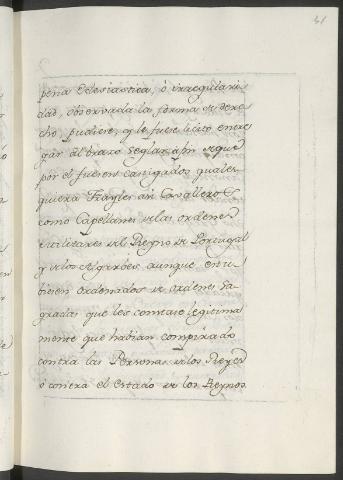 41
pena eclesiastica, ó irregulari
dad, observada la forma de dere
cho, pudiere, q.e le fuese licito entre
gar al brazo Seglar a fin de que
por el fuesen castigados quales
quiera Frayles asi Cavalleros
como Capellanes de las ordenes
militares del Reyno de Portugal
y de los Algarbes, aunque estu
biesen ordenados de ordenes Sa
gradas que les constase legitima
mente que habian conspirado
contra las Personas de los Reyes
ó contra el estado de los Reynos